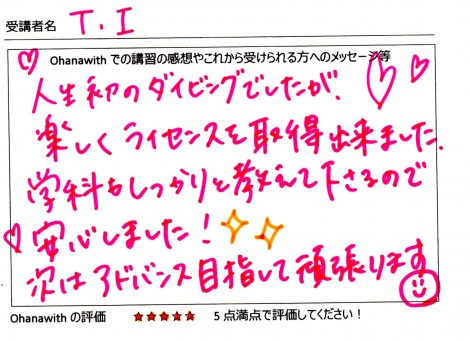 受講者名 T.I
Ohanawith での講習の感想やこれから受けられる方へのメッセージ等
人生初のダイビングでしたが、
楽しくライセンスを取得出来ました.
学科もしっかりと教えて下さるので
安心しました!
次はアドバンス目指して頑張ります
Ohanawith の評価 ★★★★★ 5 点満点で評価してください!